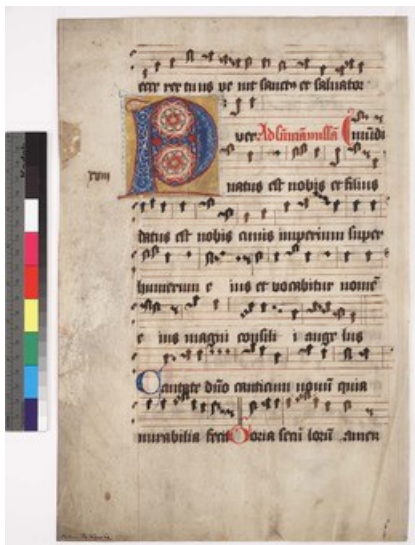 ecce rex tuus ve nit sanctꝰ et saluator
P uer Ad sūmā missā mūdi
xviii
natus est nobis et filius
datus est nobis cuius imperium super
humerum e ius et vocabitur nomē
e ius magni consili i ange lus
Cantate dño canticum nouū quia
mirabilia fecit Gloria secu lorū amen